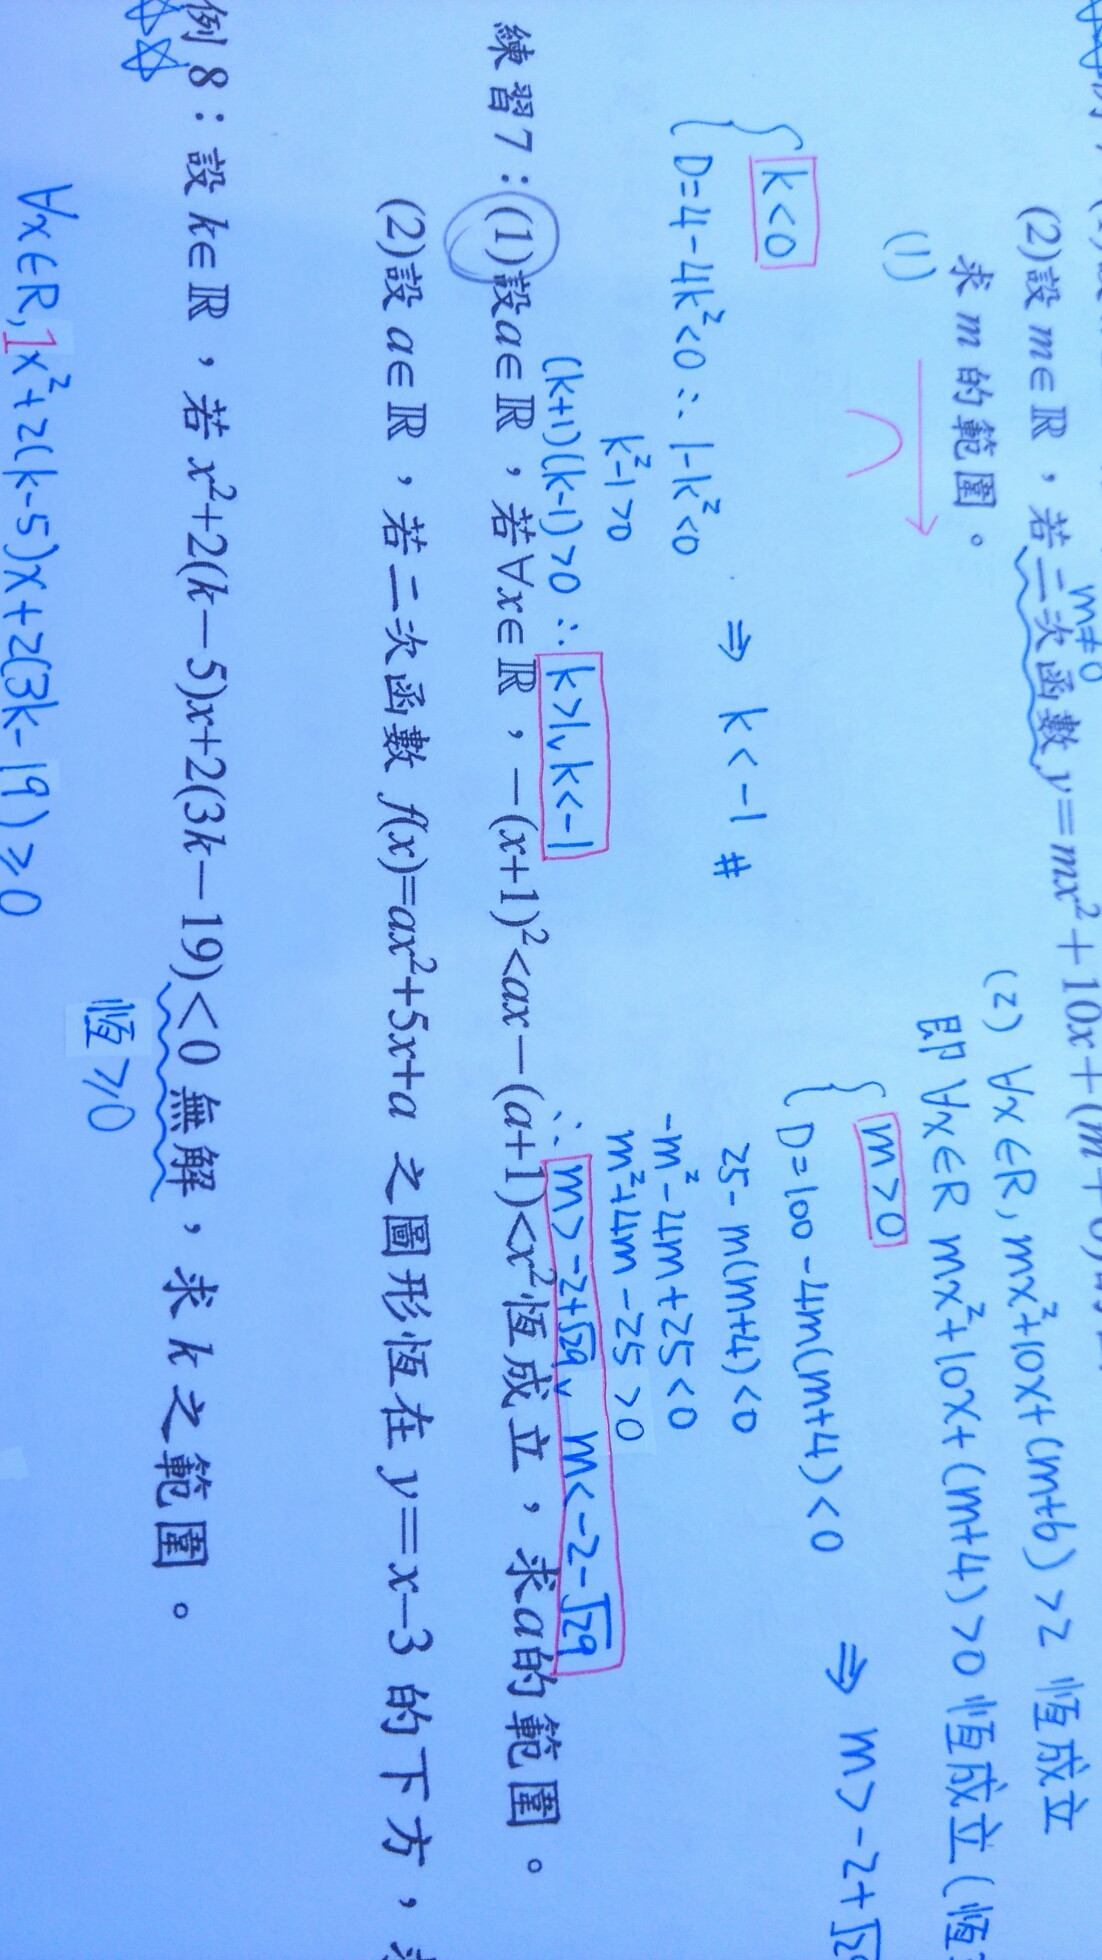 (2)設 m∈ℝ，若二次函數 y=mx²+10x+(m+6)
m≠0
求 m 的範圍。
(1)
k<0
D=4-4k²<0 ∴ 1-k²<0
k²-1>0
(k+1)(k-1)>0 ∴ k>1∨k<-1
⇒ k<-1 #
(2) ∀x∈R, mx²+10x+(m+6)>2 恆成立
即 ∀x∈R mx²+10x+(m+4)>0 恆成立(恆
m>0
D=100-4m(m+4)<0
25-m(m+4)<0
-m²-4m+25<0
m²+4m-25>0
∴ m>-2+√29∨ m<-2-√29
⇒ m>-2+√29
練習7：(1)設a∈ℝ，若∀x∈ℝ，-(x+1)²<ax-(a+1)<x²恆成立，求a的範圍。
(2)設a∈ℝ，若二次函數 f(x)=ax²+5x+a 之圖形恆在 y=x-3 的下方，
例 8：設 k∈ℝ，若 x²+2(k-5)x+2(3k-19)<0 無解，求 k 之範圍。
恆≥0
∀x∈R, 1x²+2(k-5)x+2(3k-19)≥0